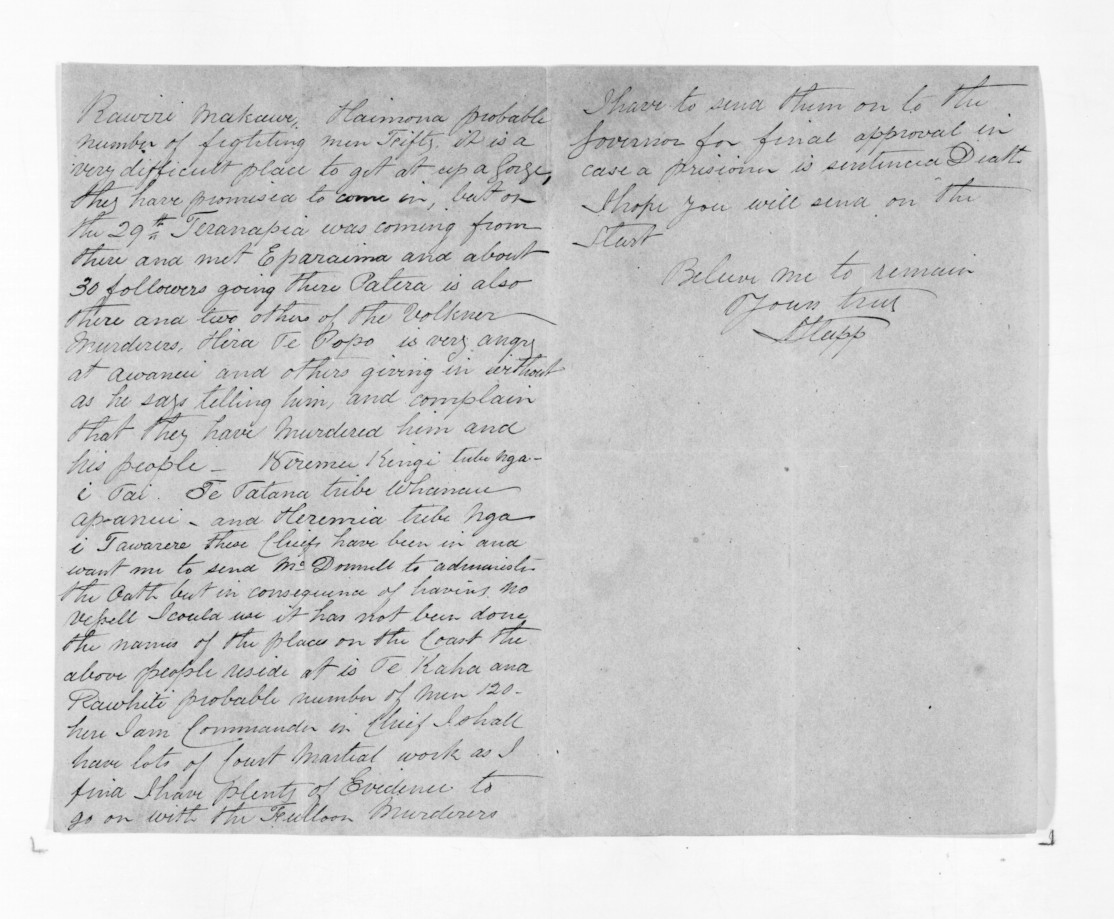 Rawiri Makawe, Haimona probable
number of fighting men Fifty. it is a
very difficult place to get at up a Gorge,
they have promised to come in, but on
the 29th Teranapia was coming from
there and met Eparaima and about
30 followers going there Patera is also
there and two others of the Volkner
Murderers, Hira Te Popo is very angry
at awanui and others giving in without
as he says telling him, and complain
that they have murdered him and
his people - Wiremu Kingi tribe nga-
i Tai. Te Tatana tribe Whanau
apanui - and Heremia tribe Nga
i Tawarere these Chiefs have been in and
want me to send McDonnell to administer
the Oath but in consequence of having no
vessell I could use it has not been done,
the names of the places on the Coast the
above people reside at is Te Kaha and
Rawhiti probable number of men 120-
here I am Commander in Chief I shall
have lots of Court Martial work as I
find I have plenty of Evidence to
go on with the Fulloon Murderers
I have to send them on to the
Governor for final approval in
case a prisioner is sentenced Death
I hope you will send on the
Sturt
Believe me to remain
Yours truly
Stapp